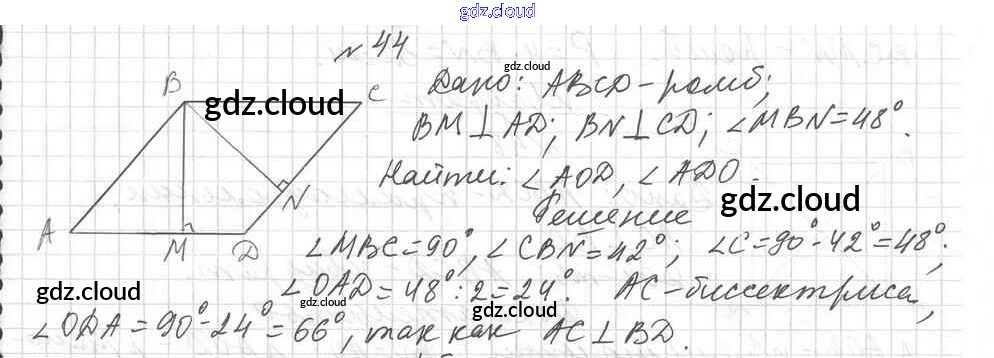 gdz.cloud
№ 44
gdz.cloud
Дано: ABCD - ромб;
B
C
gdz.cloud
BM ⊥ AD; BN ⊥ CD; ∠MBN = 48°.
Найти: ∠AOD, ∠ADO.
gdz.cloud
N
Решение
A
M
D
∠MBC = 90°, ∠CBN = 42°; ∠C = 90° - 42° = 48°.
gdz.cloud
∠OAD = 48° : 2 = 24°. AC - биссектриса,
gdz.cloud
∠ODA = 90° - 24° = 66°, так как AC ⊥ BD.
gdz.cloud